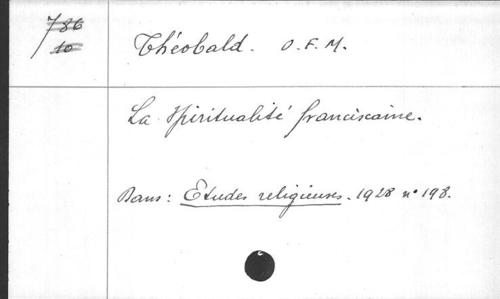 786
10
Théobald. O.F.M.
La Spiritualité franciscaine.
Dans: Etudes religieuses. 1928 n° 198.